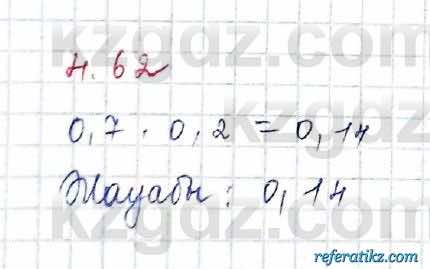 kzgdz.com
4.62
0,7 · 0,2 = 0,14
Жауабы: 0,14
kzgdz.com
referatikz.com